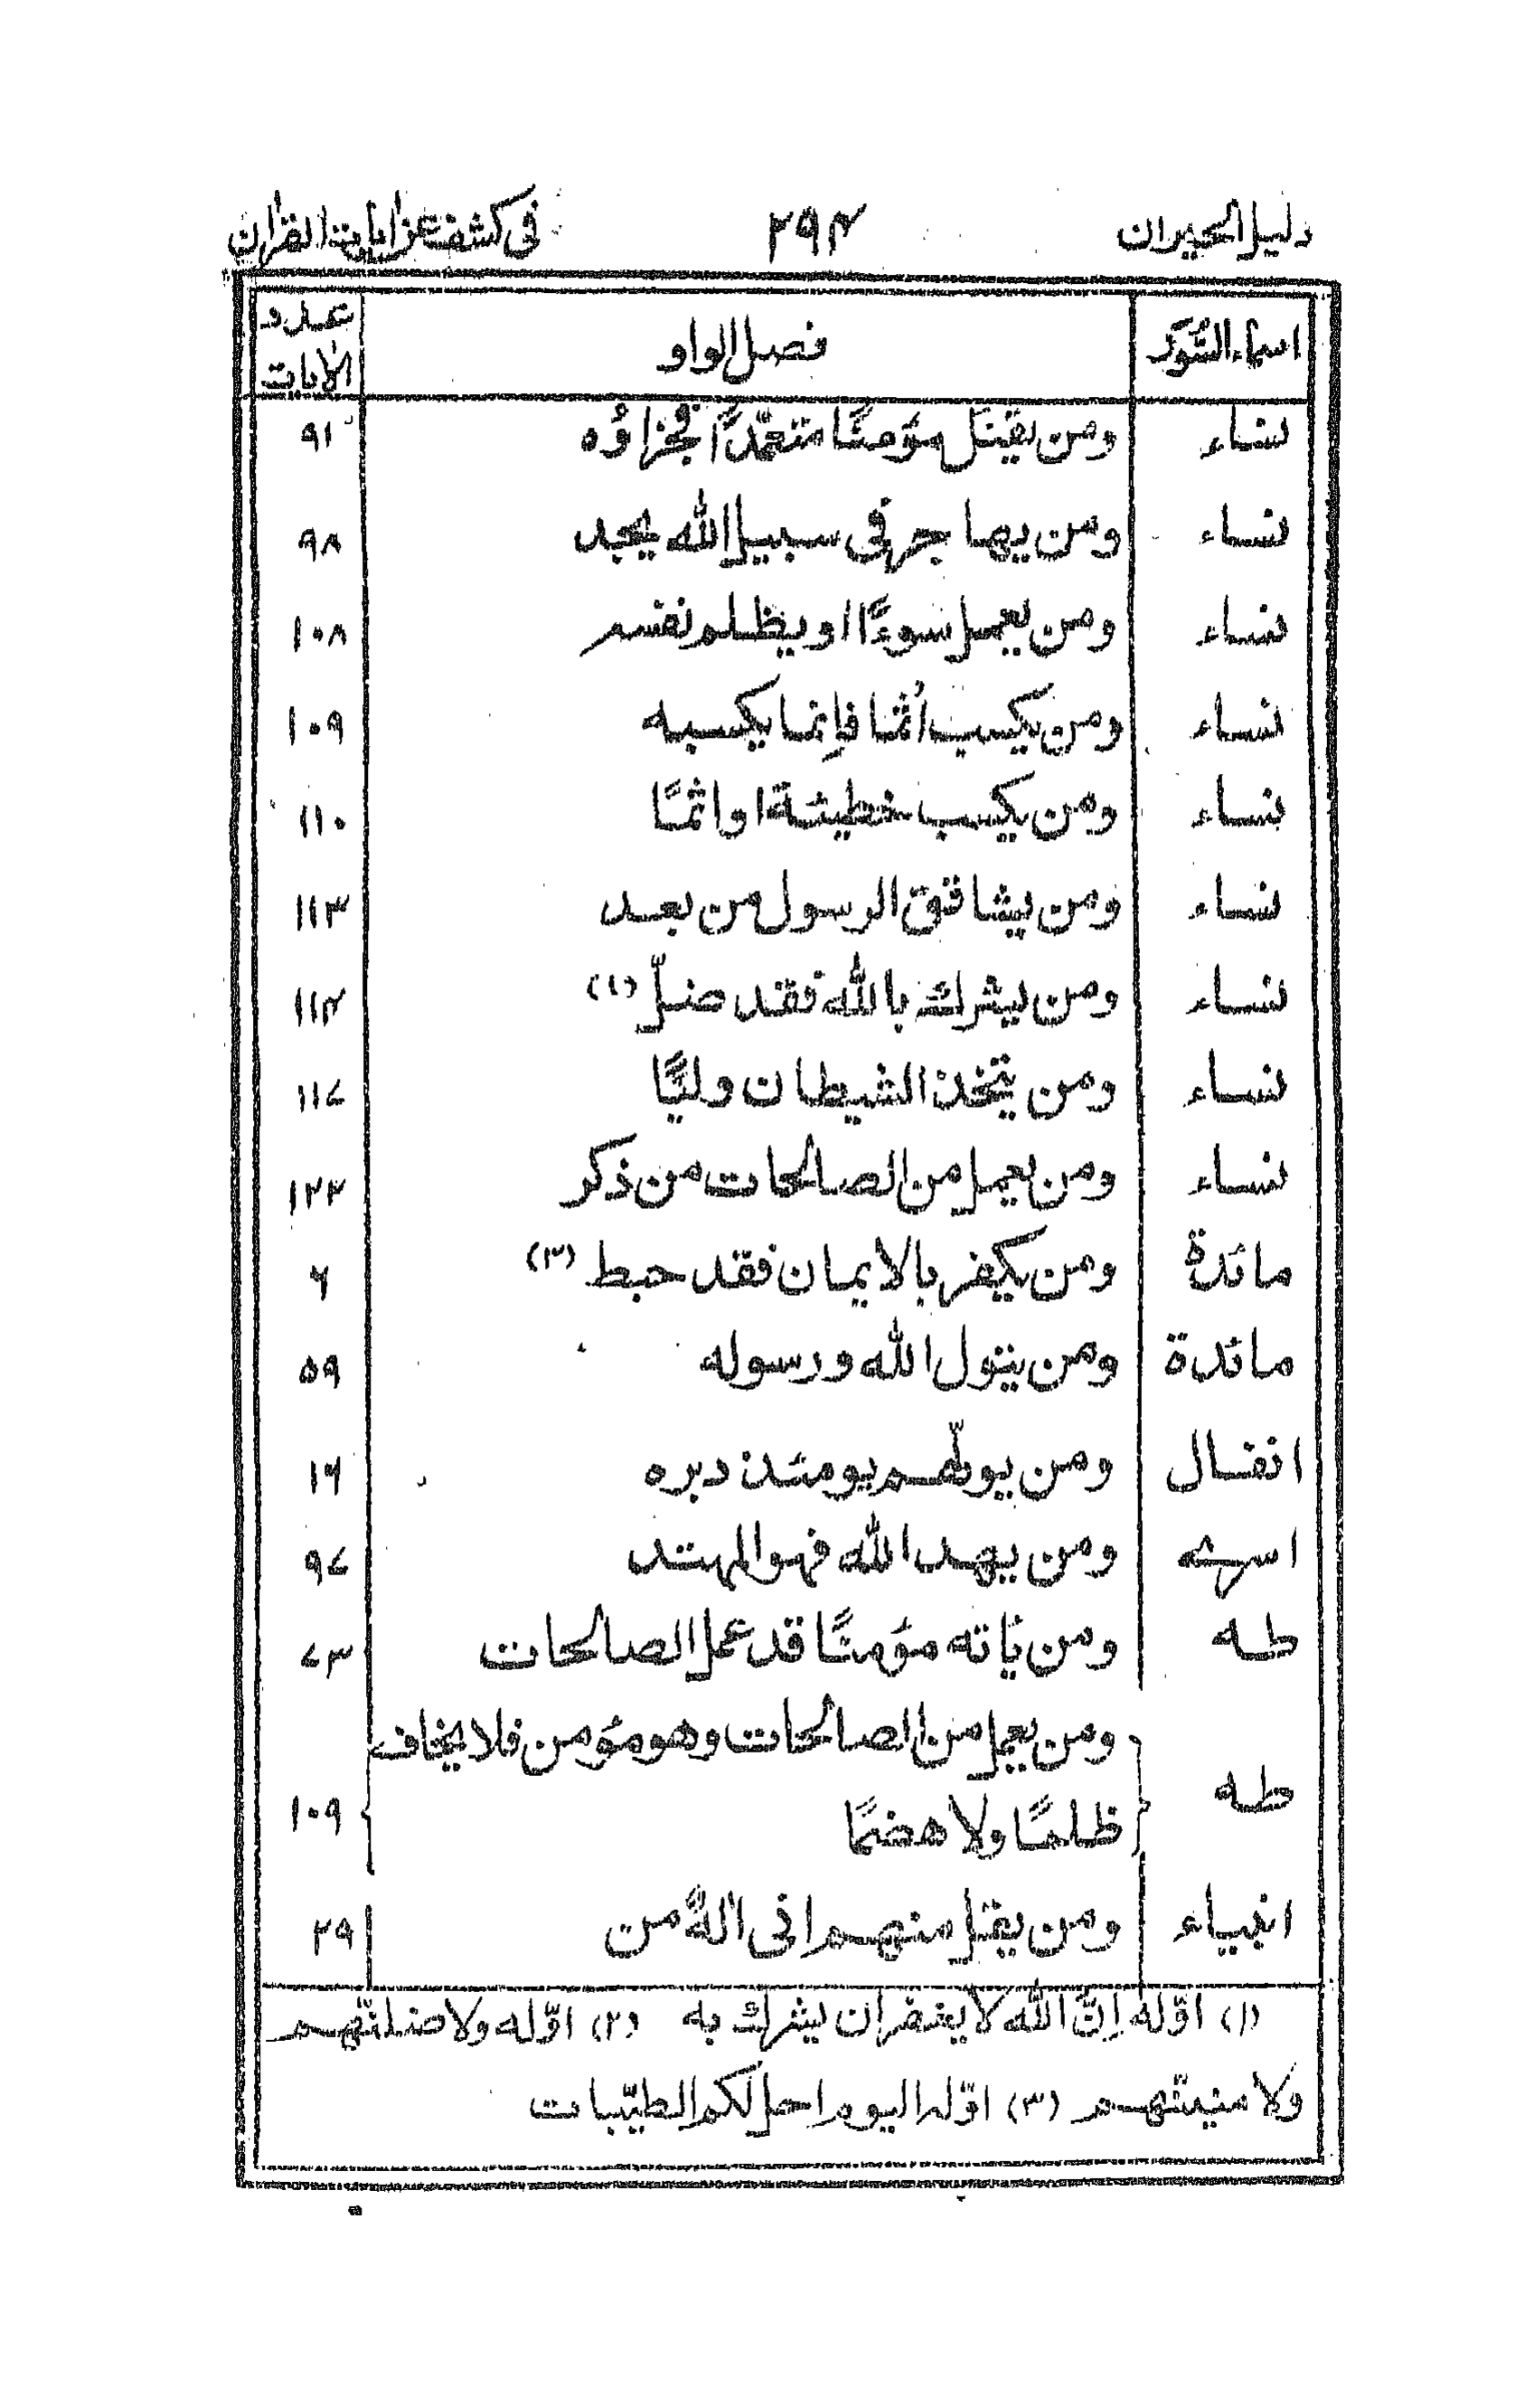 دليل الحيران ٢٩٤ فى كشف عن ايات القران
اسماء السُّوَر فصل الواو عدد الايات
نساء ومن يقتل مؤمنًا متعمّدًا فجزاؤُه ٩١
نساء ومن يهاجر فى سبيل الله يجد ٩٨
نساء ومن يعمل سوءًا او يظلم نفسه ١٠٨
نساء ومن يكسب اثما فإنما يكسبه ١٠٩
نساء ومن يكسب خطيئة او اثمًا ١١٠
نساء ومن يشاقق الرسول من بعد ١١٣
نساء ومن يشرك بالله فقد ضلّ (١) ١١٤
نساء ومن يتخذ الشيطان وليًّا ١١٧
نساء ومن يعمل من الصالحات من ذكر ١٢٣
مائدة ومن يكفر بالايمان فقد حبط (٣) ٦
مائدة ومن يتول الله ورسوله ٥٩
انفال ومن يولّهم يومئذ دبره ١٦
ومن يهد الله فهو المهتد ٩٧
طه ومن يأته مؤمنًا قد عمل الصالحات ٧٣
طه ومن يعمل من الصالحات وهو مؤمن فلا يخاف
ظلمًا ولا هضمًا ١٠٩
انبياء ومن يقل منهم انى الهٌ من ٢٩
(١) اوّله إنّ الله لا يغفر ان يشرك به (٢) اوّله ولاضلنّهم
ولامنينّهم (٣) اوّله اليوم احل لكم الطيّبات